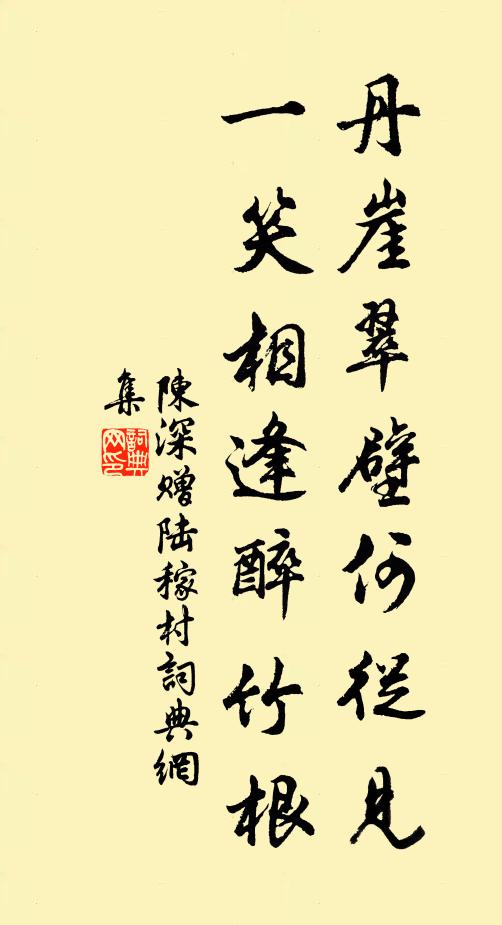 丹崖翠壁何從見
一笑相逢醉竹根
陳深贈陸稼村詞典網
集
詞典
网印